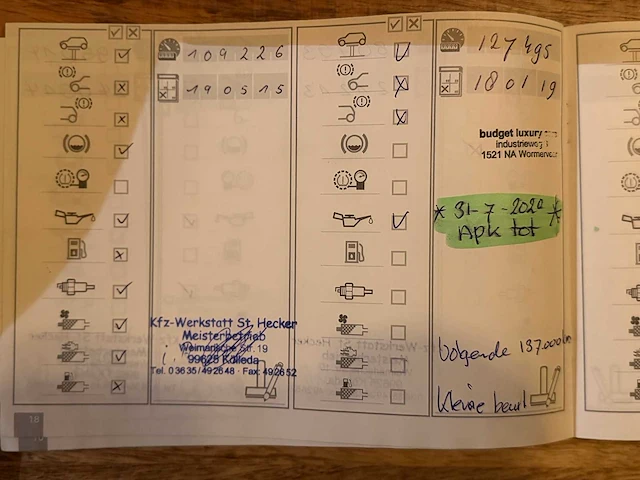 109226
190515
Kfz-Werkstatt St. Hecker
Meisterbetrieb
Weimarische Str. 19
99625 Kölleda
Tel. 03635/492648 · Fax: 492652
18
127495
180119
budget luxury cars
industrieweg 1
1521 NA Wormerveer
* 31-7-2020 *
APK tot
Volgende 137.000km
kleine beurt